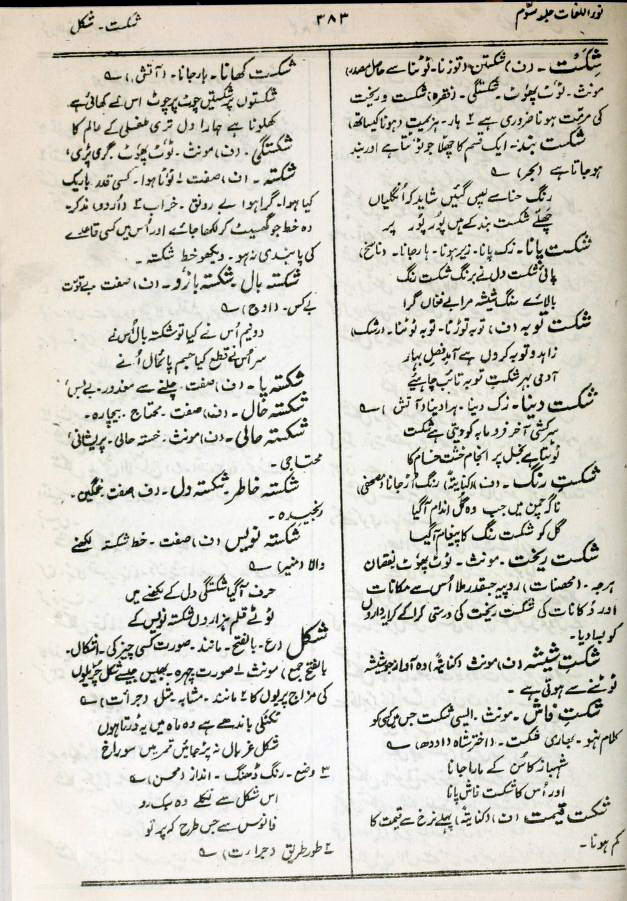 نوراللغات جلد سوّم
۳۸۳
شکست۔ شکل
شکست۔ (ف) شکستن (توڑنا۔ ٹوٹنا سے حاصل مصدر)
مونث۔ ٹوٹ پھوٹ۔ شکستگی۔ (فقرہ) شکست و ریخت
کی مرمّت ہونا ضروری ہے ۲ ہار۔ ہزیمت (ہونا کیساتھ)
شکست بند۔ ایک قسم کا چھلّا جو ٹوٹتا ہے اور بند
ہوجاتا ہے (بحر) ؎
رنگ حنا سے پس گئیں شاید کہ انگلیاں
چھلّے شکست بند کے ہیں پور پور پر
شکست پانا۔ زک پانا۔ زیر ہونا۔ ہارجانا۔ (ناسخ)
پائی شکست دل نے برنگ شکست رنگ
بالائے سنگ شیشہ مرا بے فغاں گرا
شکست توبہ (ف) توبہ توڑنا۔ توبہ ٹوٹنا۔ (رشک)
زاہد و توبہ کروں ہے آمد فصل بہار
آدمی بہر شکست توبہ تائب چاہیئے
شکست دینا۔ زک دینا۔ ہرا دینا (آتش) ؎
سرکشی آخر فرو مایہ کو دیتی ہے شکست
ٹوٹتا ہے نخل پر انجام خشت خام کا
شکست رنگ۔ (ف) (کنایۃً) رنگ اُڑجانا (مصحفی)
ناگہ چمن میں جب وہ گل اندام آگیا
گل کو شکست رنگ کا پیغام آگیا
شکست ریخت۔ مونث۔ ٹوٹ پھوٹ نقصان
ہرجہ۔ (محصنات) روپیہ جسقدر ملا اُس سے مکانات
اور دُکانات کی شکست ریخت کی درستی کراکے کرایہ داروں
کو بسا دیا۔
شکست شیشہ (ف) مونث (کنایۃً) وہ آواز جو شیشہ
ٹوٹنے سے ہوتی ہے۔
شکست فاش۔ مونث۔ ایسی شکست جس میں کسی کو
کلام نہو۔ بھاری شکست۔ (اختر شاہ اودھ) ؎
شہباز کا سن کے مارا جانا
اور اُس کا شکست فاش پانا
شکست قیمت (ف) (کنایۃً) پہلے نرخ سے قیمت کا
کم ہونا۔
شکست کھانا۔ ہارجانا۔ (آتش) ؎
شکستوں پر شکستیں چوٹ پر چوٹ اس نے کھائی ہے
کھلونا ہے ہمارا دل تری طفلی کے عالم کا
شکستگی۔ (ف) مونث۔ ٹوٹ پھوٹ۔ گری پڑی۔
شکستہ۔ (ف) صفت ۱ ٹوٹا ہوا۔ کسی قدر باریک
کیا ہوا۔ گرا ہوا بے رونق۔ خراب ۲ (اردو) مذکر۔
وہ خط جو گھسیٹ کر لکھا جائے اور اُس میں کسی قاعدے
کی پابندی نہ ہو۔ دیکھو خط شکستہ۔
شکستہ بال۔ شکستہ بازُو۔ (ف) صفت بے قوّت
بے کس۔ (اوج) ؎
دو نیم اُس نے کیا تو شکستہ بال اُس نے
سر اُس نے قطع کیا جسم پائمال اُس نے
شکستہ پا۔ (ف) صفت۔ چلنے سے معذور۔ بے بس
شکستہ حال۔ (ف) صفت۔ محتاج۔ بیچارہ۔
شکستہ حالی۔ (ف) مونث۔ خستہ حالی۔ پریشانی
محتاجی۔
شکستہ خاطر۔ شکستہ دل۔ (ف) صفت۔ غمگین۔
رنجیدہ۔
شکستہ نویس (ف) صفت۔ خط شکستہ لکھنے
والا (منیر) ؎
حرف آگیا شکستگی دل کے لکھنے میں
ٹوٹے قلم ہزاروں شکستہ نویس کے
شکل (ع۔ بالفتح۔ مانند۔ صورت کسی چیز کی۔ اشکال۔
بالفتح جمع) مونث ۱ صورت چہرہ۔ بھیس جیسے شکل چڑیلوں
کی مزاج پریوں کا ۲ مانند۔ مشابہ مثل (جرائت) ؎
ٹکٹکی باندھے ہے وہ ماہ میں یہ ڈرتا ہوں
شکل غربال نہ پڑجائیں قمر میں سوراخ
۳ وضع۔ رنگ ڈھنگ۔ انداز (محسن) ؎
اس شکل سے نکلے وہ سبک رو
فانوس سے جس طرح کہ پرتو
۴ طور طریق (حرارت) ؎